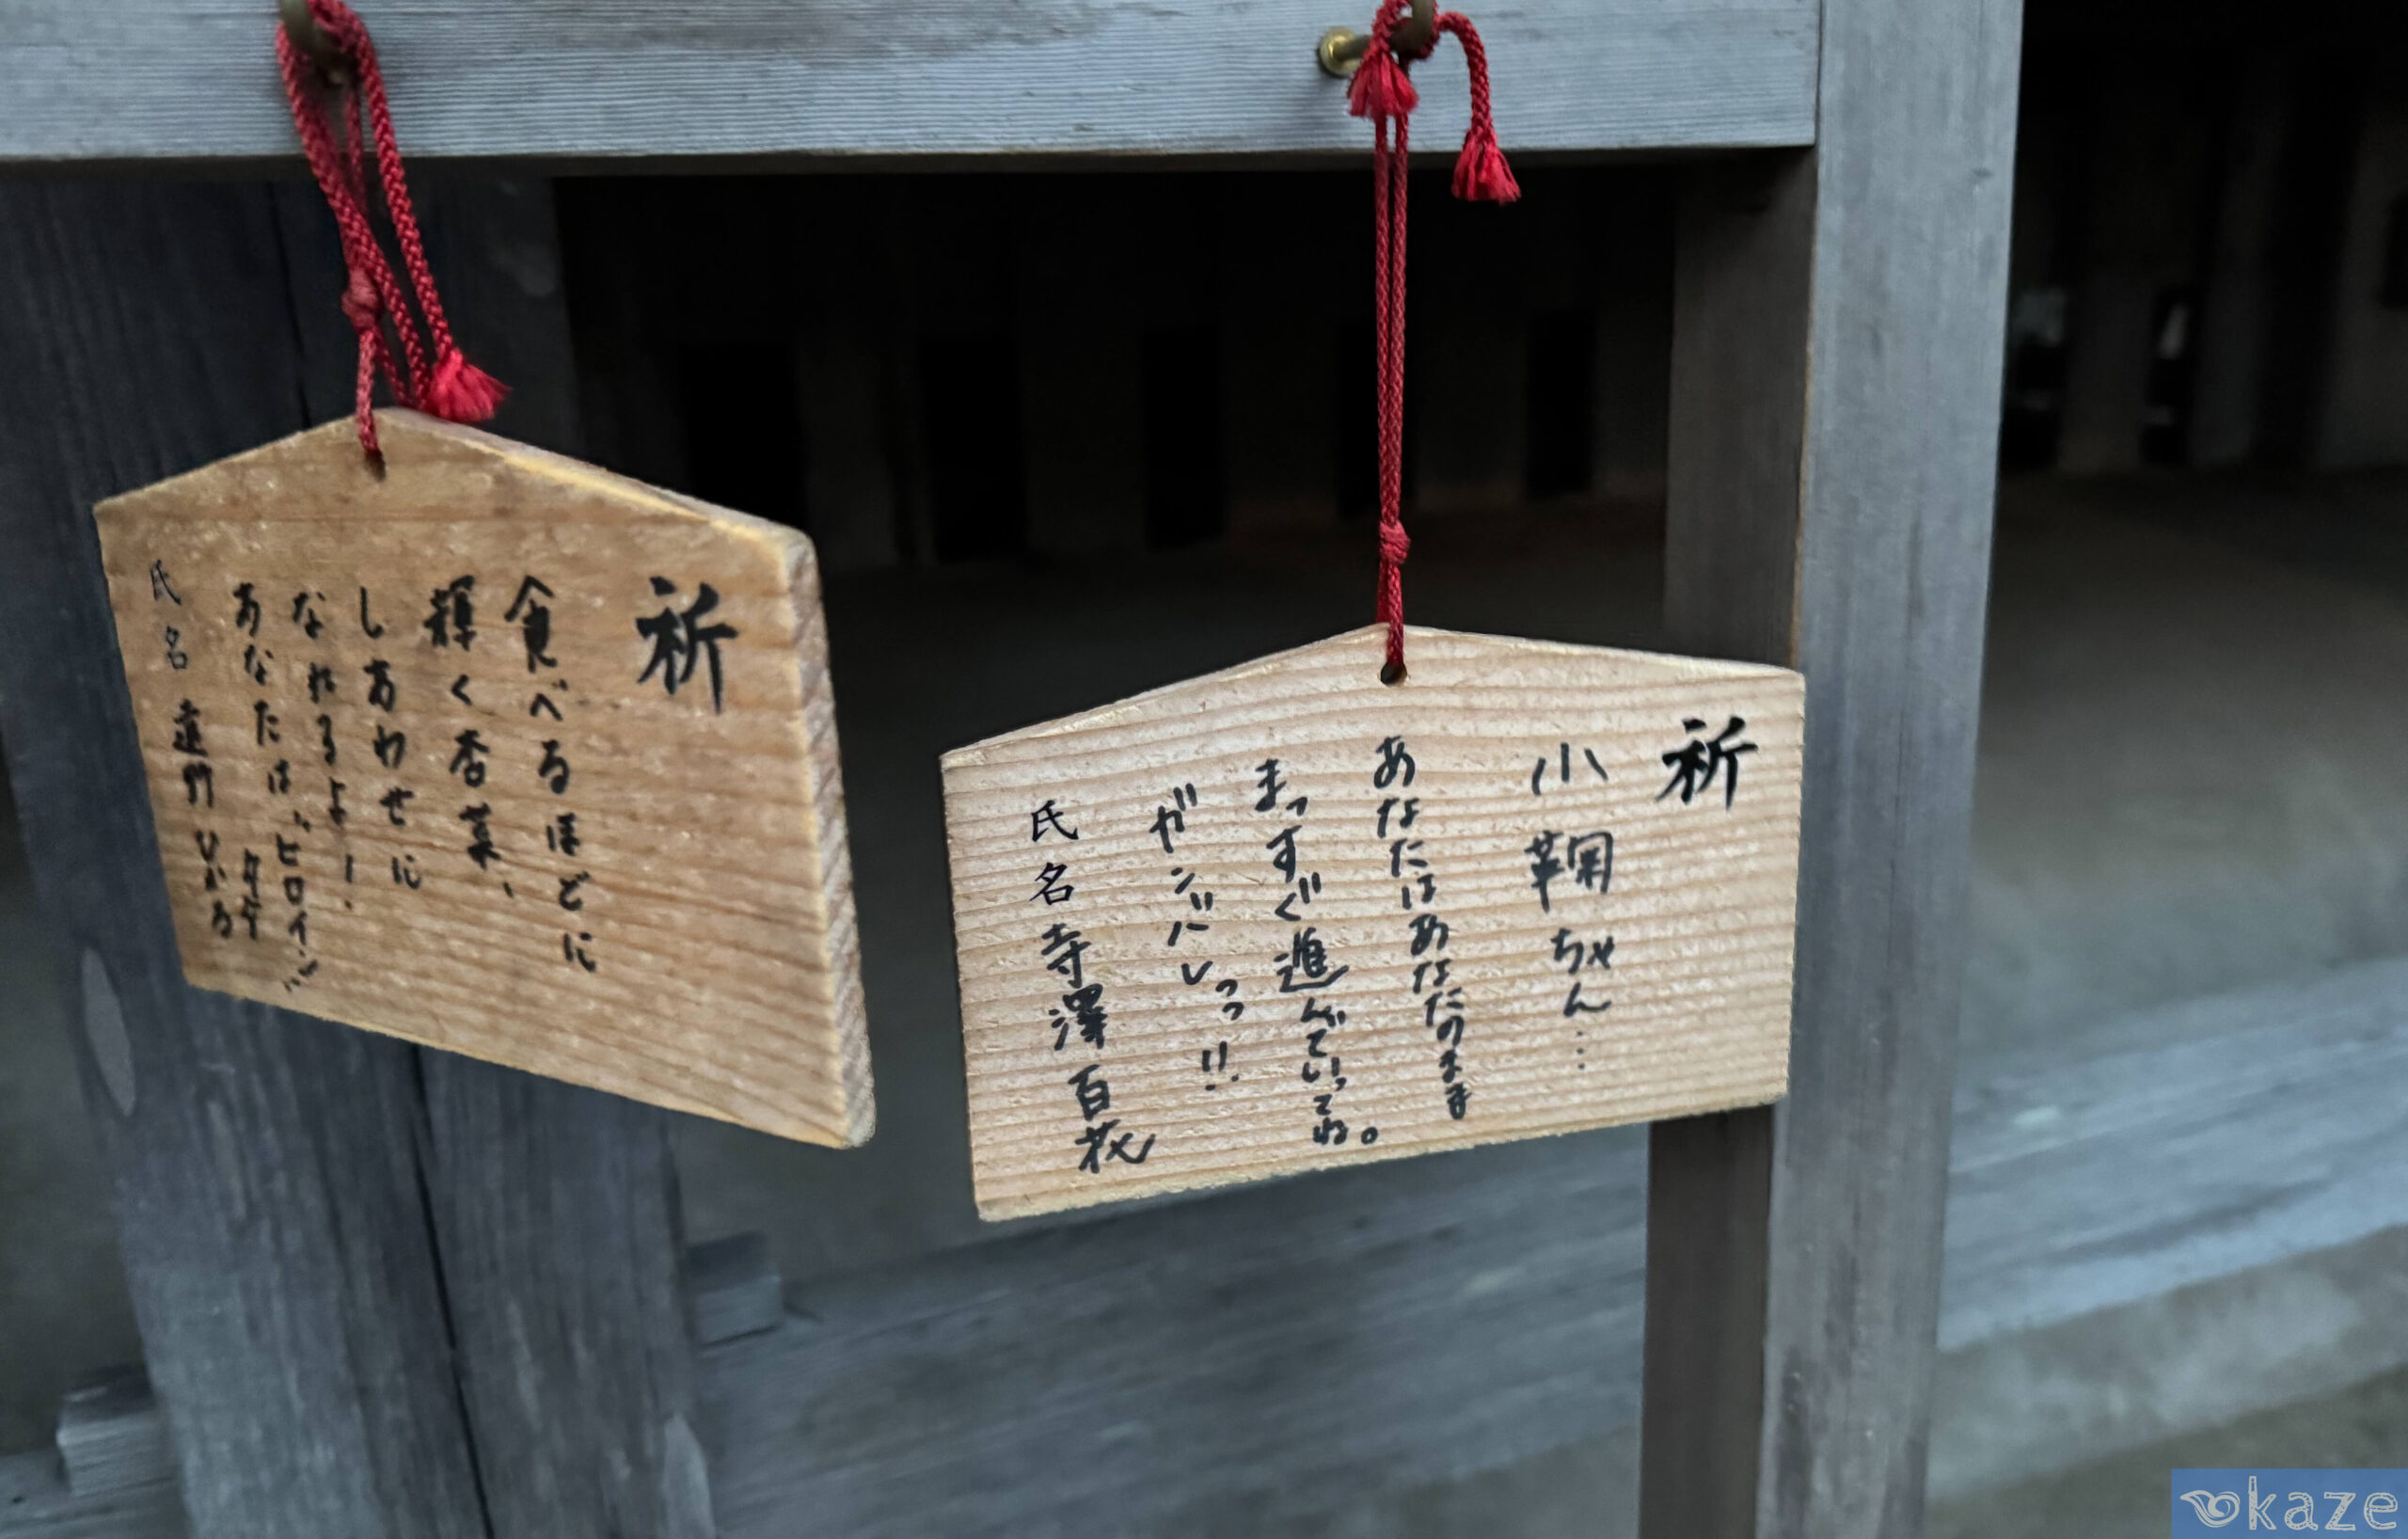 祈
食べるほどに
輝く杏菜、
しあわせに
なれるよ！
あなたは"ヒロイン"
タゲ
氏名 遠野ひかる
祈
小鞠ちゃん…
あなたはあなたのまま
まっすぐ進んでいってね。
ガンバレっっ!!
氏名 寺澤百花
kaze